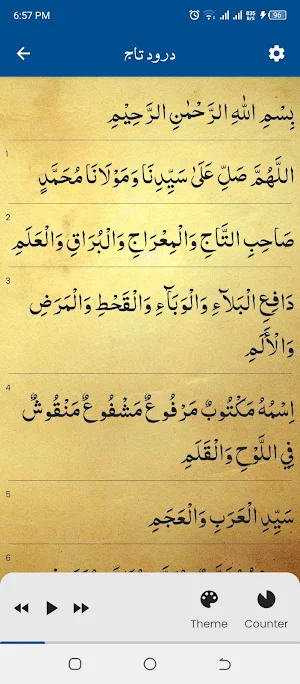 6:57 PM 835 B/S 96
درود تاج
بِسْمِ اللّٰهِ الرَّحْمٰنِ الرَّحِيْمِ
1
اللّٰهُمَّ صَلِّ عَلٰى سَيِّدِنَا وَمَوْلَانَا مُحَمَّدٍ
2
صَاحِبِ التَّاجِ وَالْمِعْرَاجِ وَالْبُرَاقِ وَالْعَلَمِ
3
دَافِعِ الْبَلَآءِ وَالْوَبَآءِ وَالْقَحْطِ وَالْمَرَضِ
وَالْأَلَمِ
4
اِسْمُهٗ مَكْتُوْبٌ مَرْفُوْعٌ مَشْفُوْعٌ مَنْقُوْشٌ
فِي اللَّوْحِ وَالْقَلَمِ
5
سَيِّدِ الْعَرَبِ وَالْعَجَمِ
6
Theme Counter